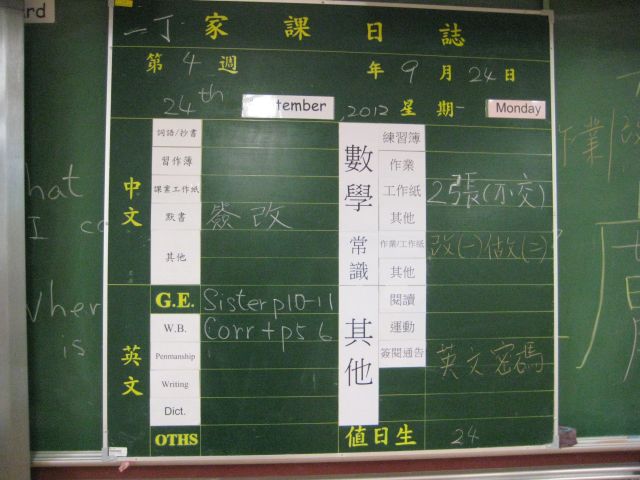 一丁 家課日誌
第 4 週 年 9 月 24 日
24th tember , 2012 星期一 Monday
中文
詞語/抄書
習作簿
課業工作紙
默書 簽改
其他
英文
G.E. Sister p10-11
W.B. Corr + p5 6
Penmanship
Writing
Dict.
OTHS
數學
練習簿
作業
工作紙 2張(不交)
其他
常識
作業/工作紙 改(一)做(二)
其他
其他
閱讀
運動
簽閱通告 英文密碼
值日生 24
ard
hat
I c
Wher
is
作業